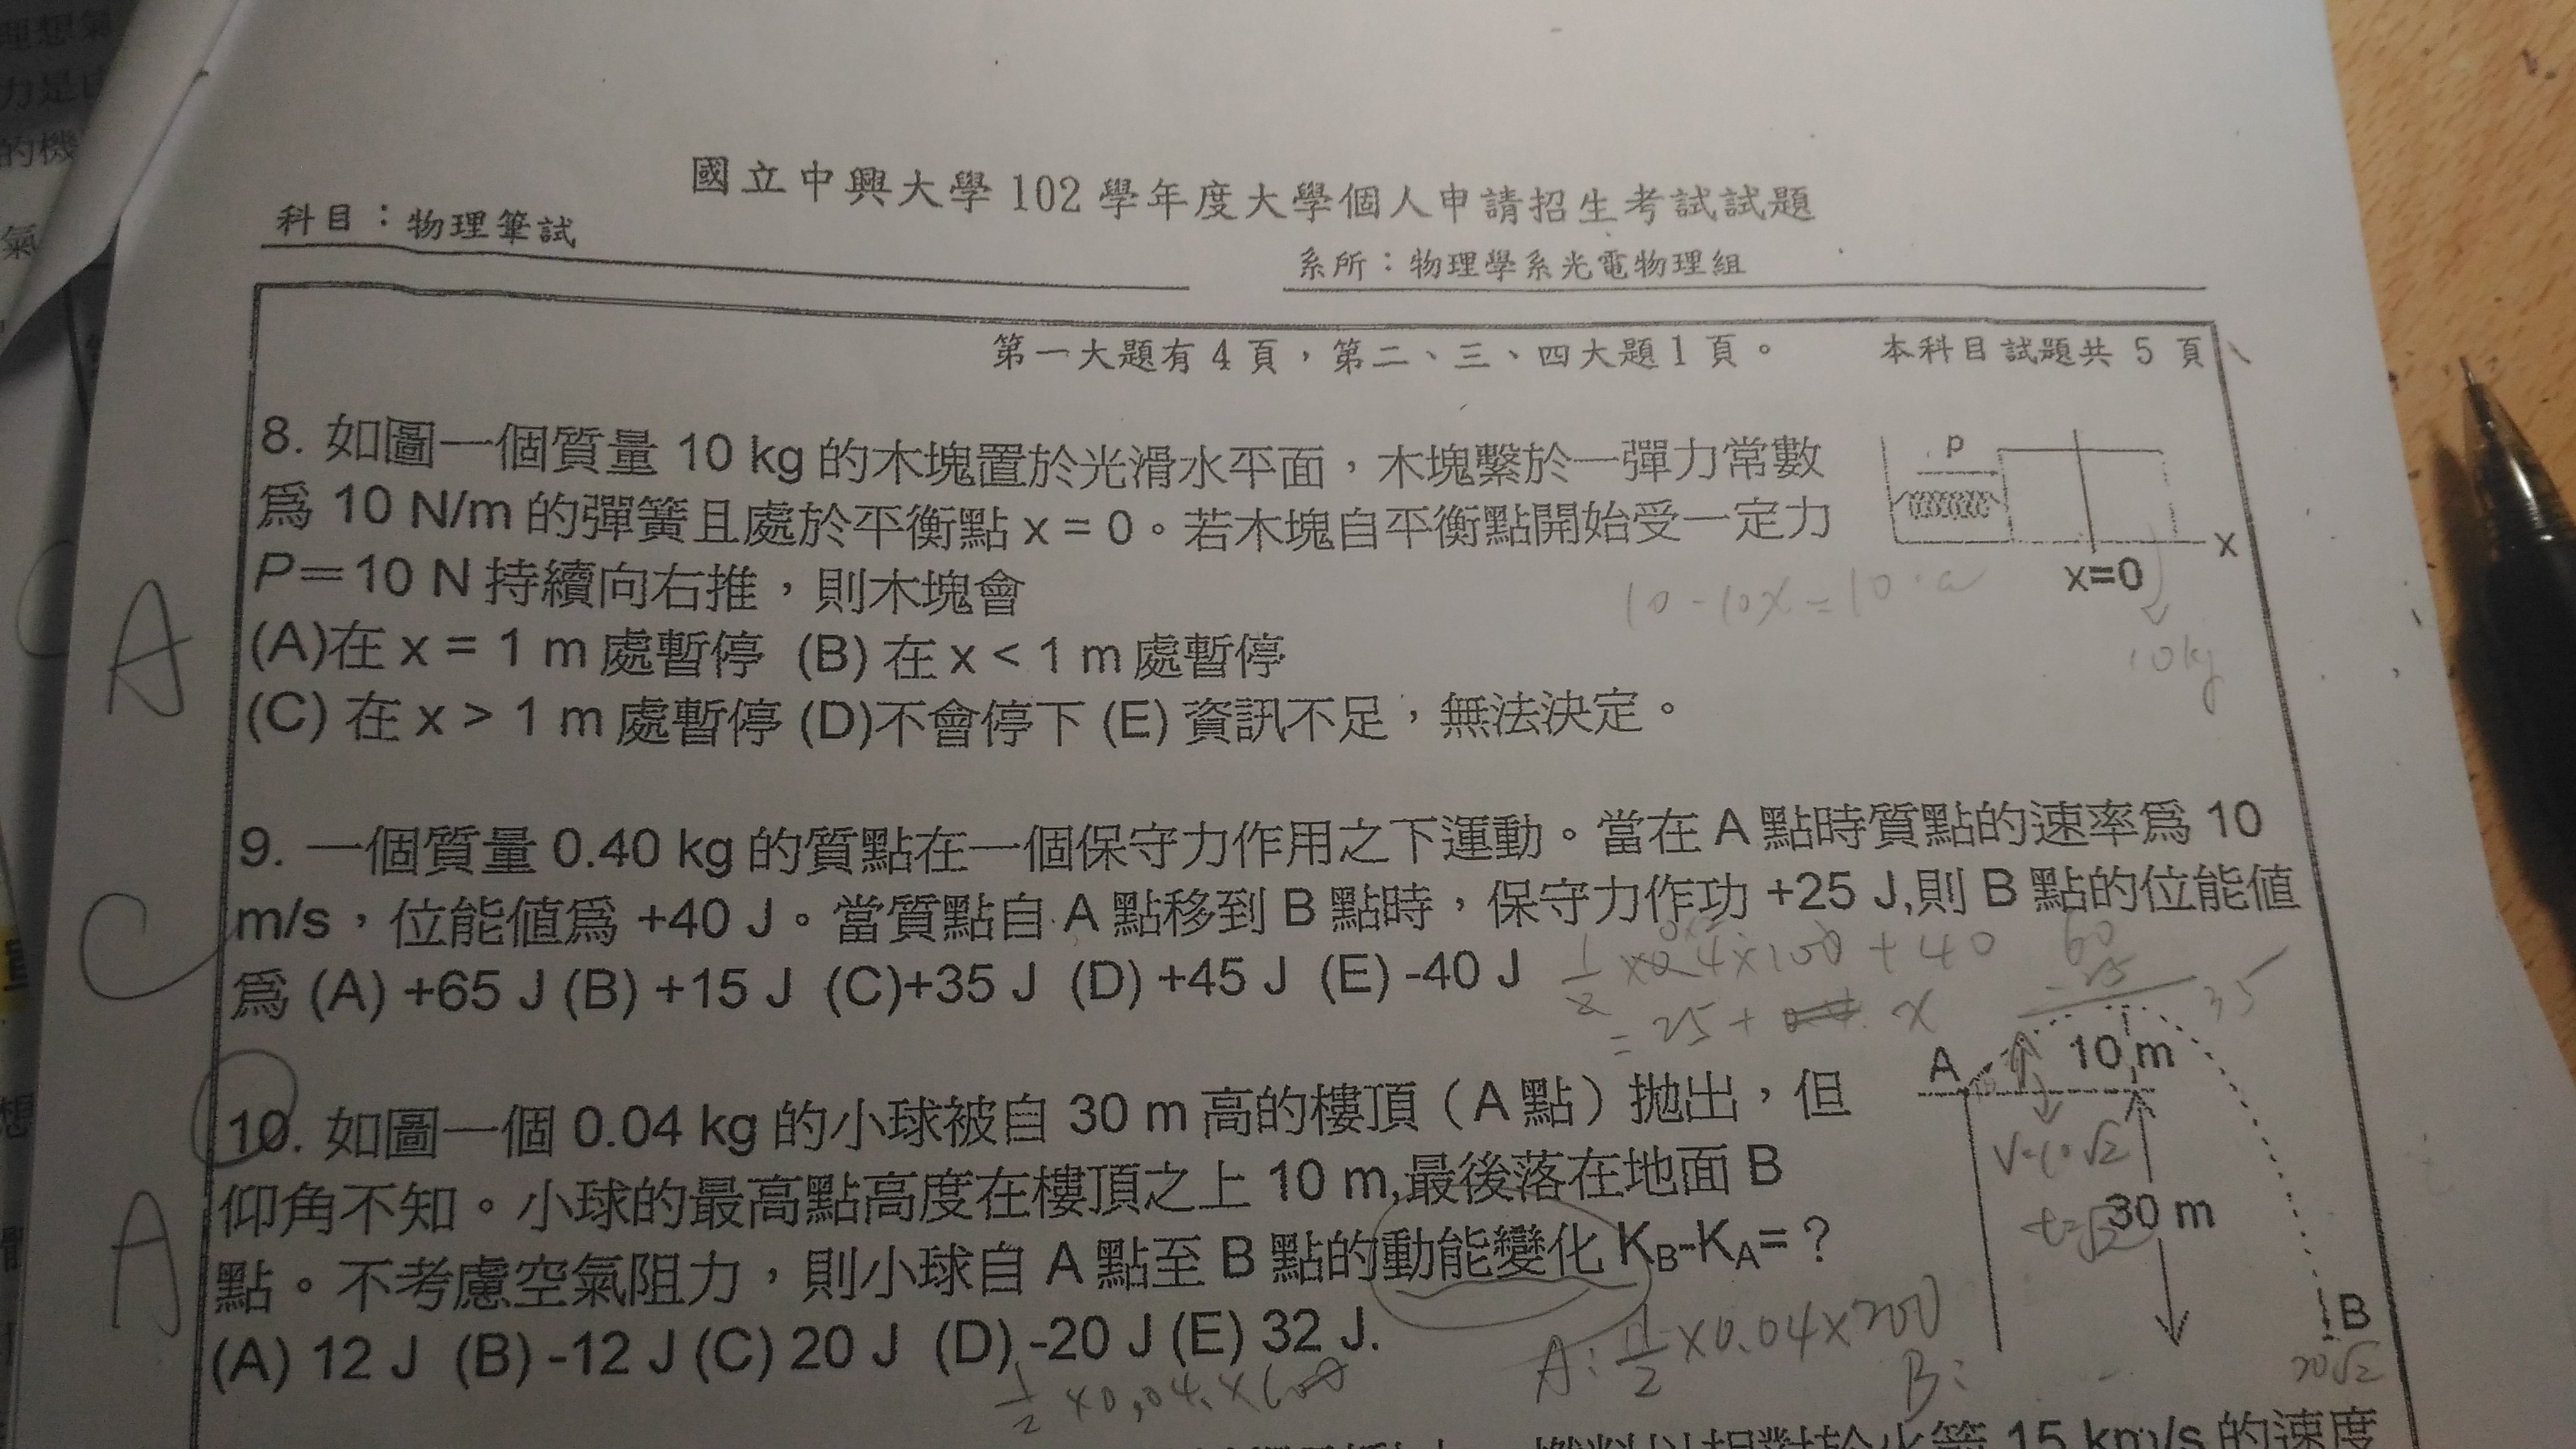 國立中興大學 102 學年度大學個人申請招生考試試題
科目：物理筆試
系所：物理學系光電物理組
第一大題有 4 頁，第二、三、四大題 1 頁。 本科目試題共 5 頁
8. 如圖一個質量 10 kg 的木塊置於光滑水平面，木塊繫於一彈力常數
為 10 N/m 的彈簧且處於平衡點 x = 0。若木塊自平衡點開始受一定力
P＝10 N 持續向右推，則木塊會
(A)在 x = 1 m 處暫停 (B) 在 x < 1 m 處暫停
(C) 在 x > 1 m 處暫停 (D)不會停下 (E) 資訊不足，無法決定。
P
x
x=0
10-10x=10·a
10kg
A
9. 一個質量 0.40 kg 的質點在一個保守力作用之下運動。當在 A 點時質點的速率為 10
m/s，位能值為 +40 J。當質點自 A 點移到 B 點時，保守力作功 +25 J,則 B 點的位能值
為 (A) +65 J (B) +15 J (C)+35 J (D) +45 J (E) -40 J
C
1/2 ×0.4×100+40
= 25+ x
60
35
10. 如圖一個 0.04 kg 的小球被自 30 m 高的樓頂（A 點）拋出，但
仰角不知。小球的最高點高度在樓頂之上 10 m,最後落在地面 B
點。不考慮空氣阻力，則小球自 A 點至 B 點的動能變化 KB-KA=？
(A) 12 J (B) -12 J (C) 20 J (D) -20 J (E) 32 J.
A
A
10 m
30 m
B
V=10√2
t=√2
20√2
A: 1/2 ×0.04×200
B:
15 km/s 的速度